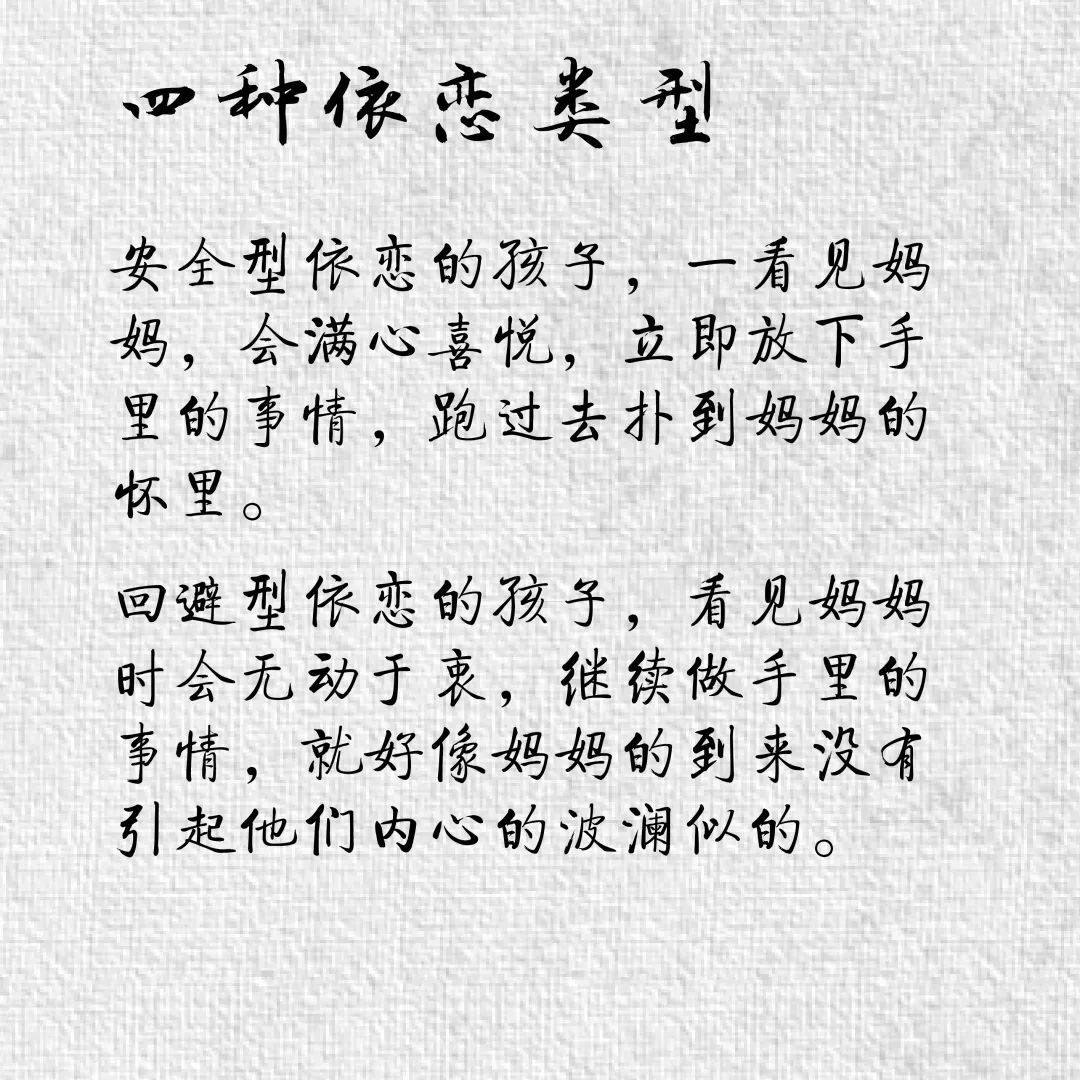 四种依恋类型
安全型依恋的孩子，一看见妈
妈，会满心喜悦，立即放下手
里的事情，跑过去扑到妈妈的
怀里。
回避型依恋的孩子，看见妈妈
时会无动于衷，继续做手里的
事情，就好像妈妈的到来没有
引起他们内心的波澜似的。